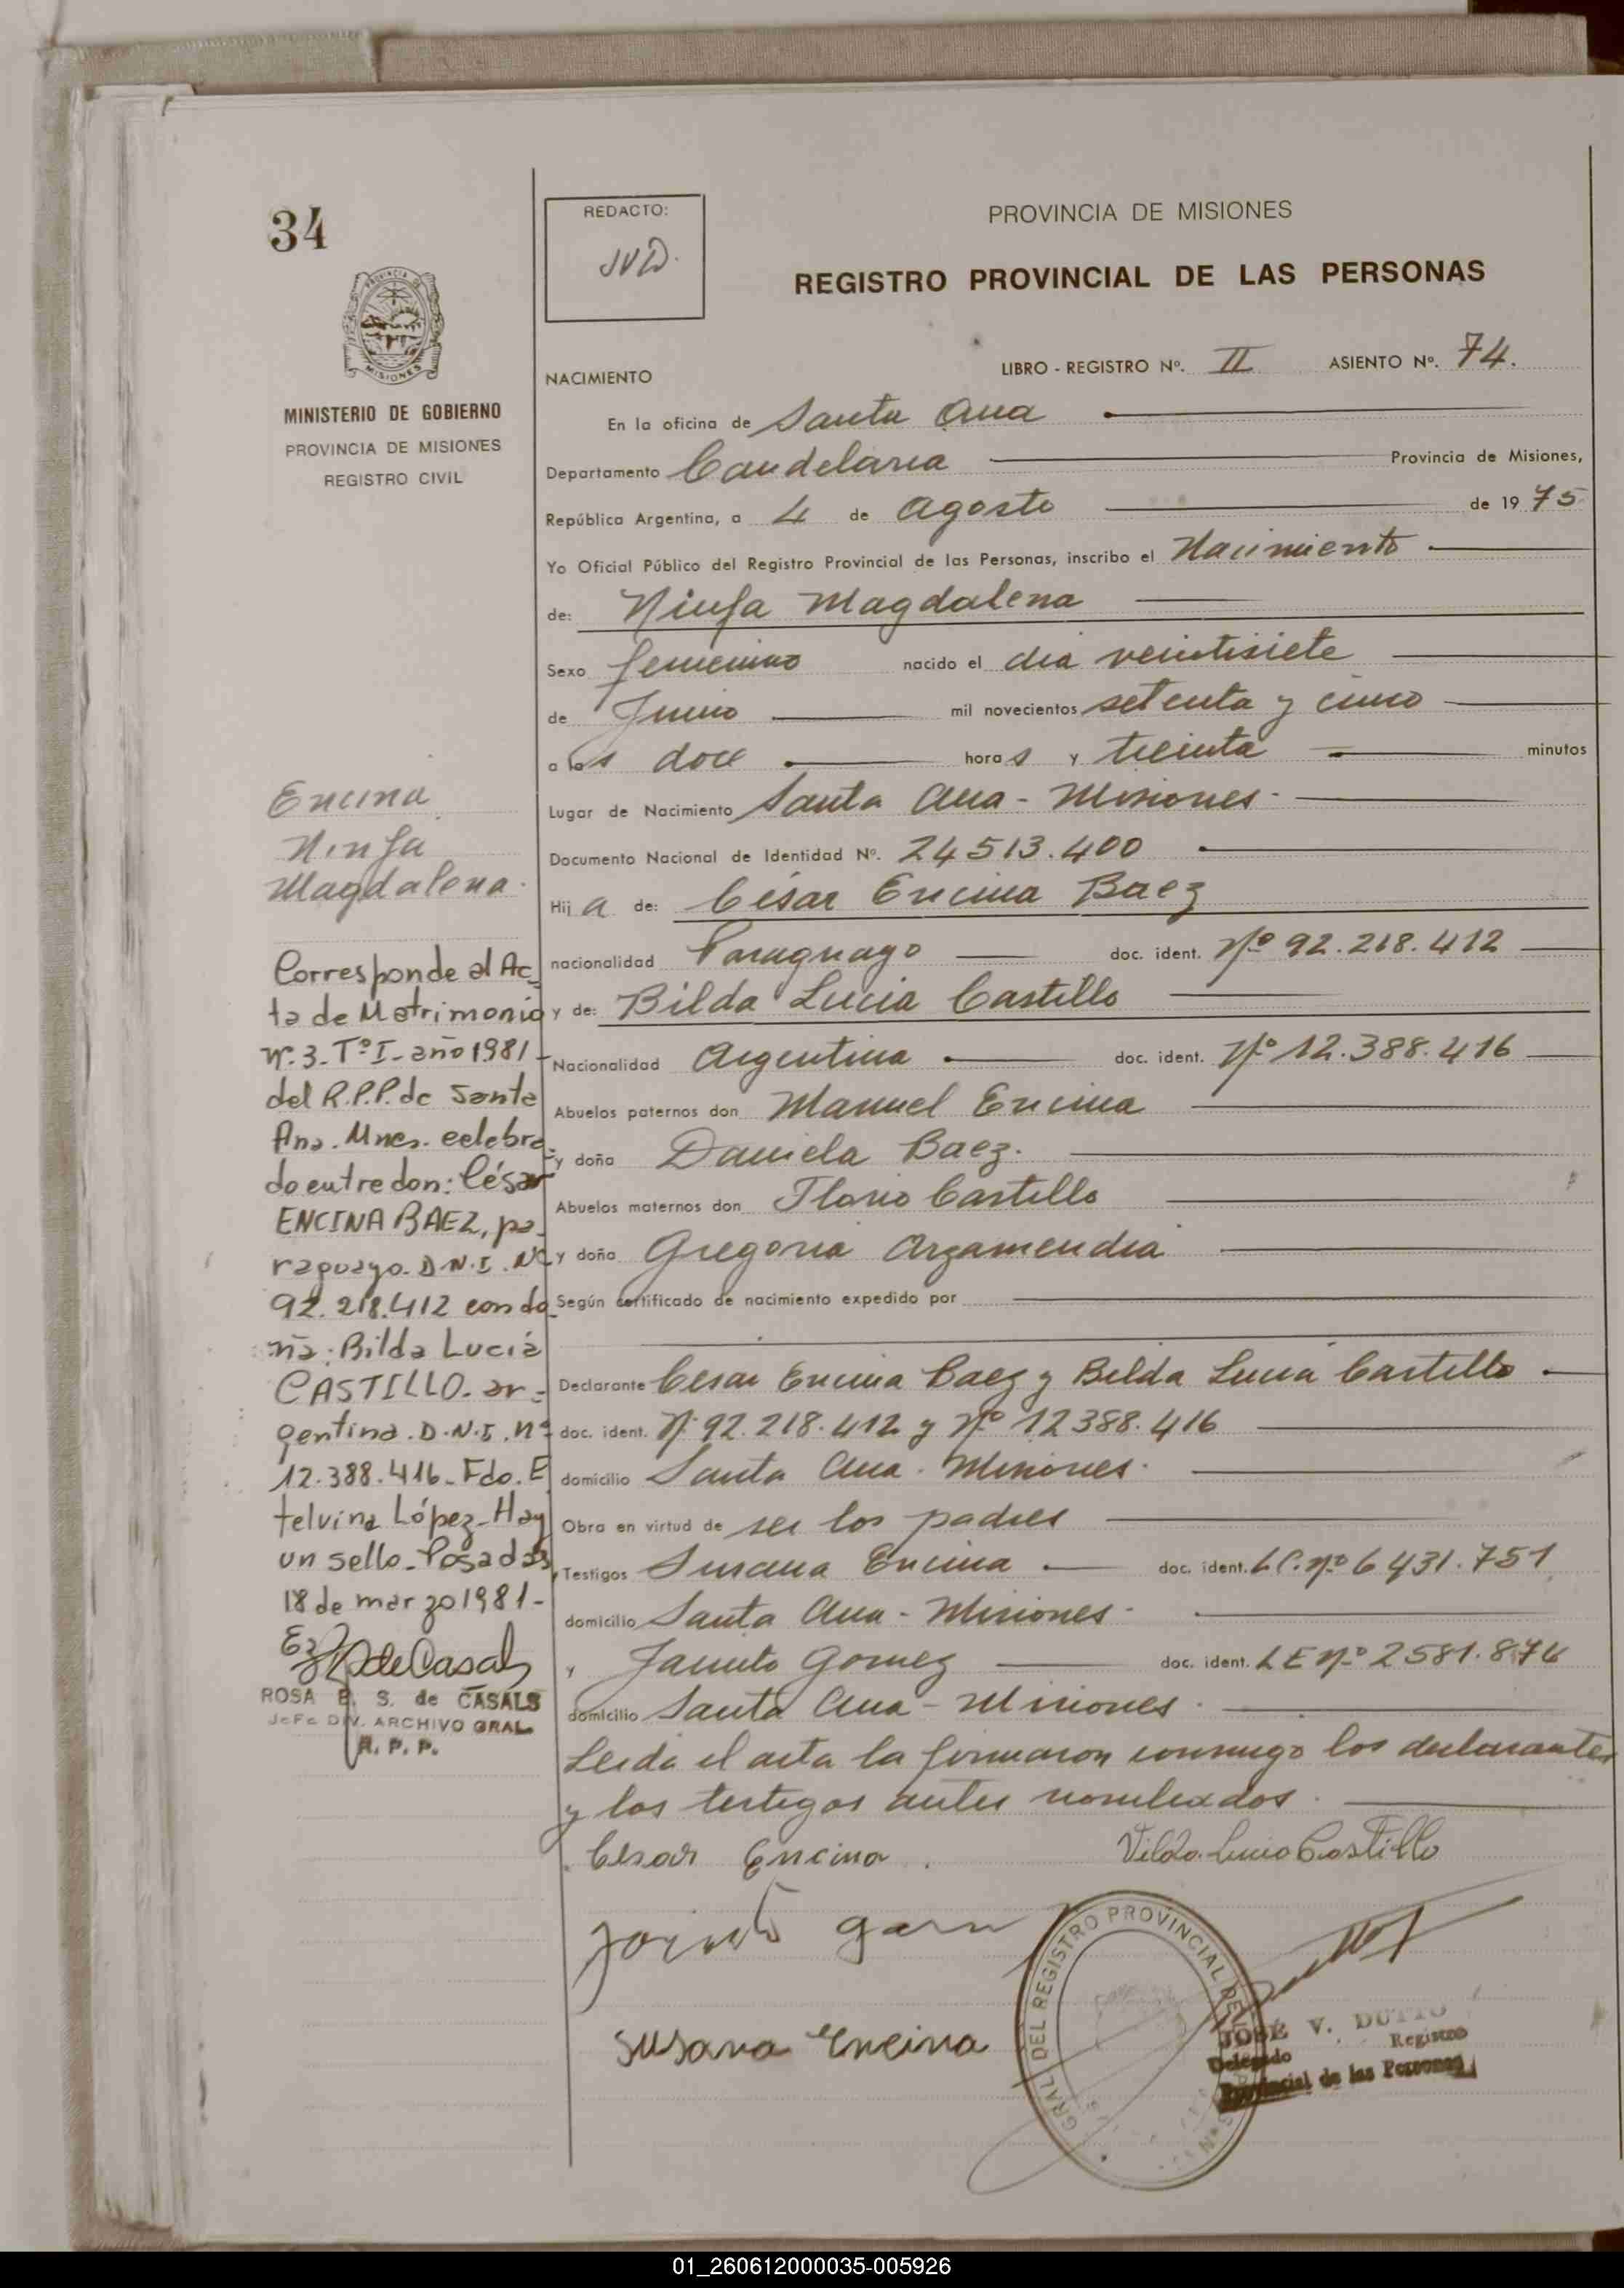 34
REDACTO:
JVD.
PROVINCIA DE MISIONES
REGISTRO PROVINCIAL DE LAS PERSONAS
PROVINCIA DE
MISIONES
MINISTERIO DE GOBIERNO
PROVINCIA DE MISIONES
REGISTRO CIVIL
NACIMIENTO
LIBRO - REGISTRO Nº. II ASIENTO Nº. 74.
En la oficina de Santa Ana
Departamento Candelaria Provincia de Misiones,
República Argentina, a 4 de Agosto de 1975
Yo Oficial Público del Registro Provincial de las Personas, inscribo el Nacimiento
de: Ninfa Magdalena
Sexo femenino nacido el dia veintisiete
de Junio mil novecientos setenta y cinco
a las doce horas y treinta minutos
Lugar de Nacimiento Santa Ana - Misiones -
Documento Nacional de Identidad Nº. 24513.400
Hija de: César Encina Baez
nacionalidad Paraguayo doc. ident. Nº 92.218.412
y de: Bilda Lucia Castillo
Nacionalidad Argentina doc. ident. Nº 12.388.416
Abuelos paternos don Manuel Encina
y doña Daniela Baez.
Abuelos maternos don Florio Castillo
y doña Gregoria Arzamendia
Según certificado de nacimiento expedido por
Declarante Cesar Encina Baez y Bilda Lucia Castillo
doc. ident. Nº 92.218.412 y Nº 12388.416
domicilio Santa Ana - Misiones.
Obra en virtud de ser los padres
Testigos Susana Encina doc. ident. LC. nº 6431.751
domicilio Santa Ana - Misiones -
y Jacinto Gomez doc. ident. LE nº 2581.876
domicilio Santa Ana - Misiones.
Leida el acta la firmaron conmigo los declarantes
y los testigos antes nombrados.
Cesar Encina. Vilda Lucia Castillo
Jacinto
Susana Encina
GRAL DEL REGISTRO PROVINCIAL DE
JOSÉ V. DUTTO
Delegado Registro
Provincial de las Personas
Encina
Ninfa
Magdalena.
Corresponde al Ac-
ta de Matrimonio
Nº. 3 - Tº I - año 1981 -
del R.P.P. de Santa
Ana. Mnes. celebra-
do entre don: César
ENCINA BAEZ, pa-
raguayo. D.N.I. Nº
92.218.412 con do-
ña: Bilda Lucia
CASTILLO. ar-
gentina. D.N.I. nº
12.388.416. Fdo. E
telvina López - Hay
un sello - Posadas,
18 de marzo 1981 -
de Casals
ROSA E. S. de CASALS
JeFe DIV. ARCHIVO GRAL.
R. P. P.
01_260612000035-005926